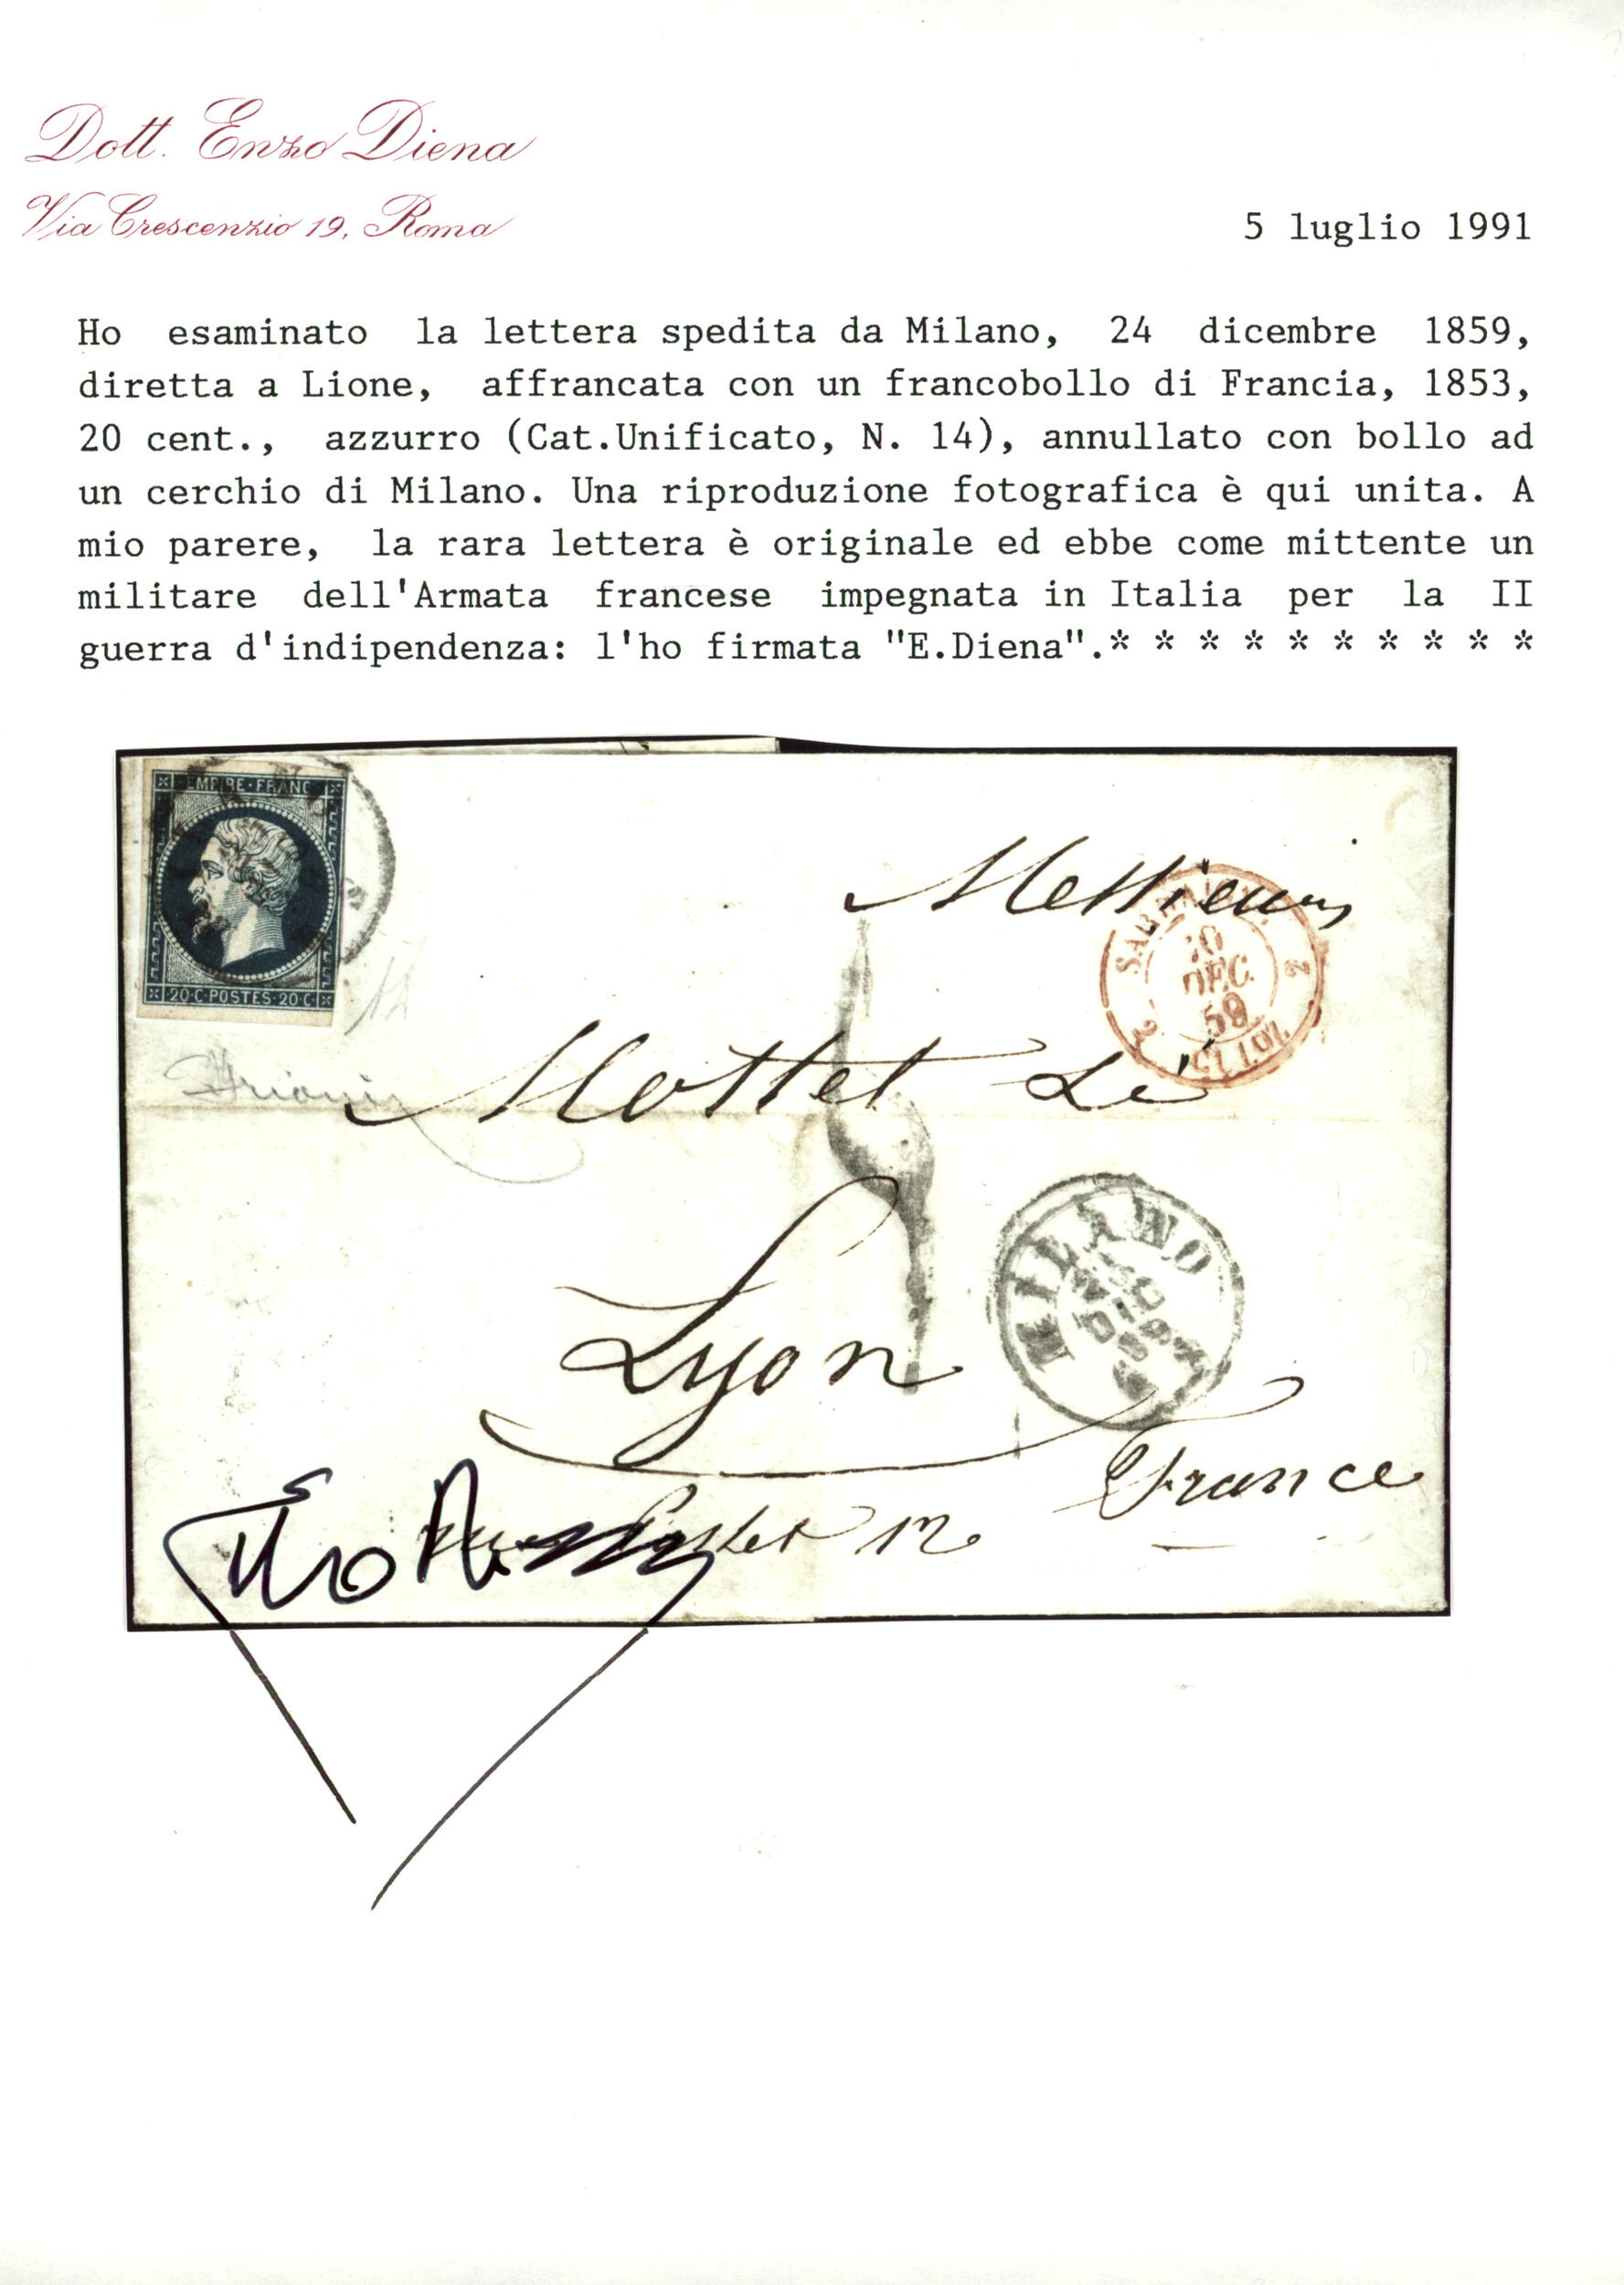 Dott. Enzo Diena
Via Crescenzio 19, Roma
5 luglio 1991
Ho esaminato la lettera spedita da Milano, 24 dicembre 1859,
diretta a Lione, affrancata con un francobollo di Francia, 1853,
20 cent., azzurro (Cat.Unificato, N. 14), annullato con bollo ad
un cerchio di Milano. Una riproduzione fotografica è qui unita. A
mio parere, la rara lettera è originale ed ebbe come mittente un
militare dell'Armata francese impegnata in Italia per la II
guerra d'indipendenza: l'ho firmata "E.Diena".* * * * * * * * * *
EMPIRE·FRANC
20·C·POSTES·20·C·
Messieurs
DEC.
59
Mottet
Lyon
MILANO
DIC
59
France
12